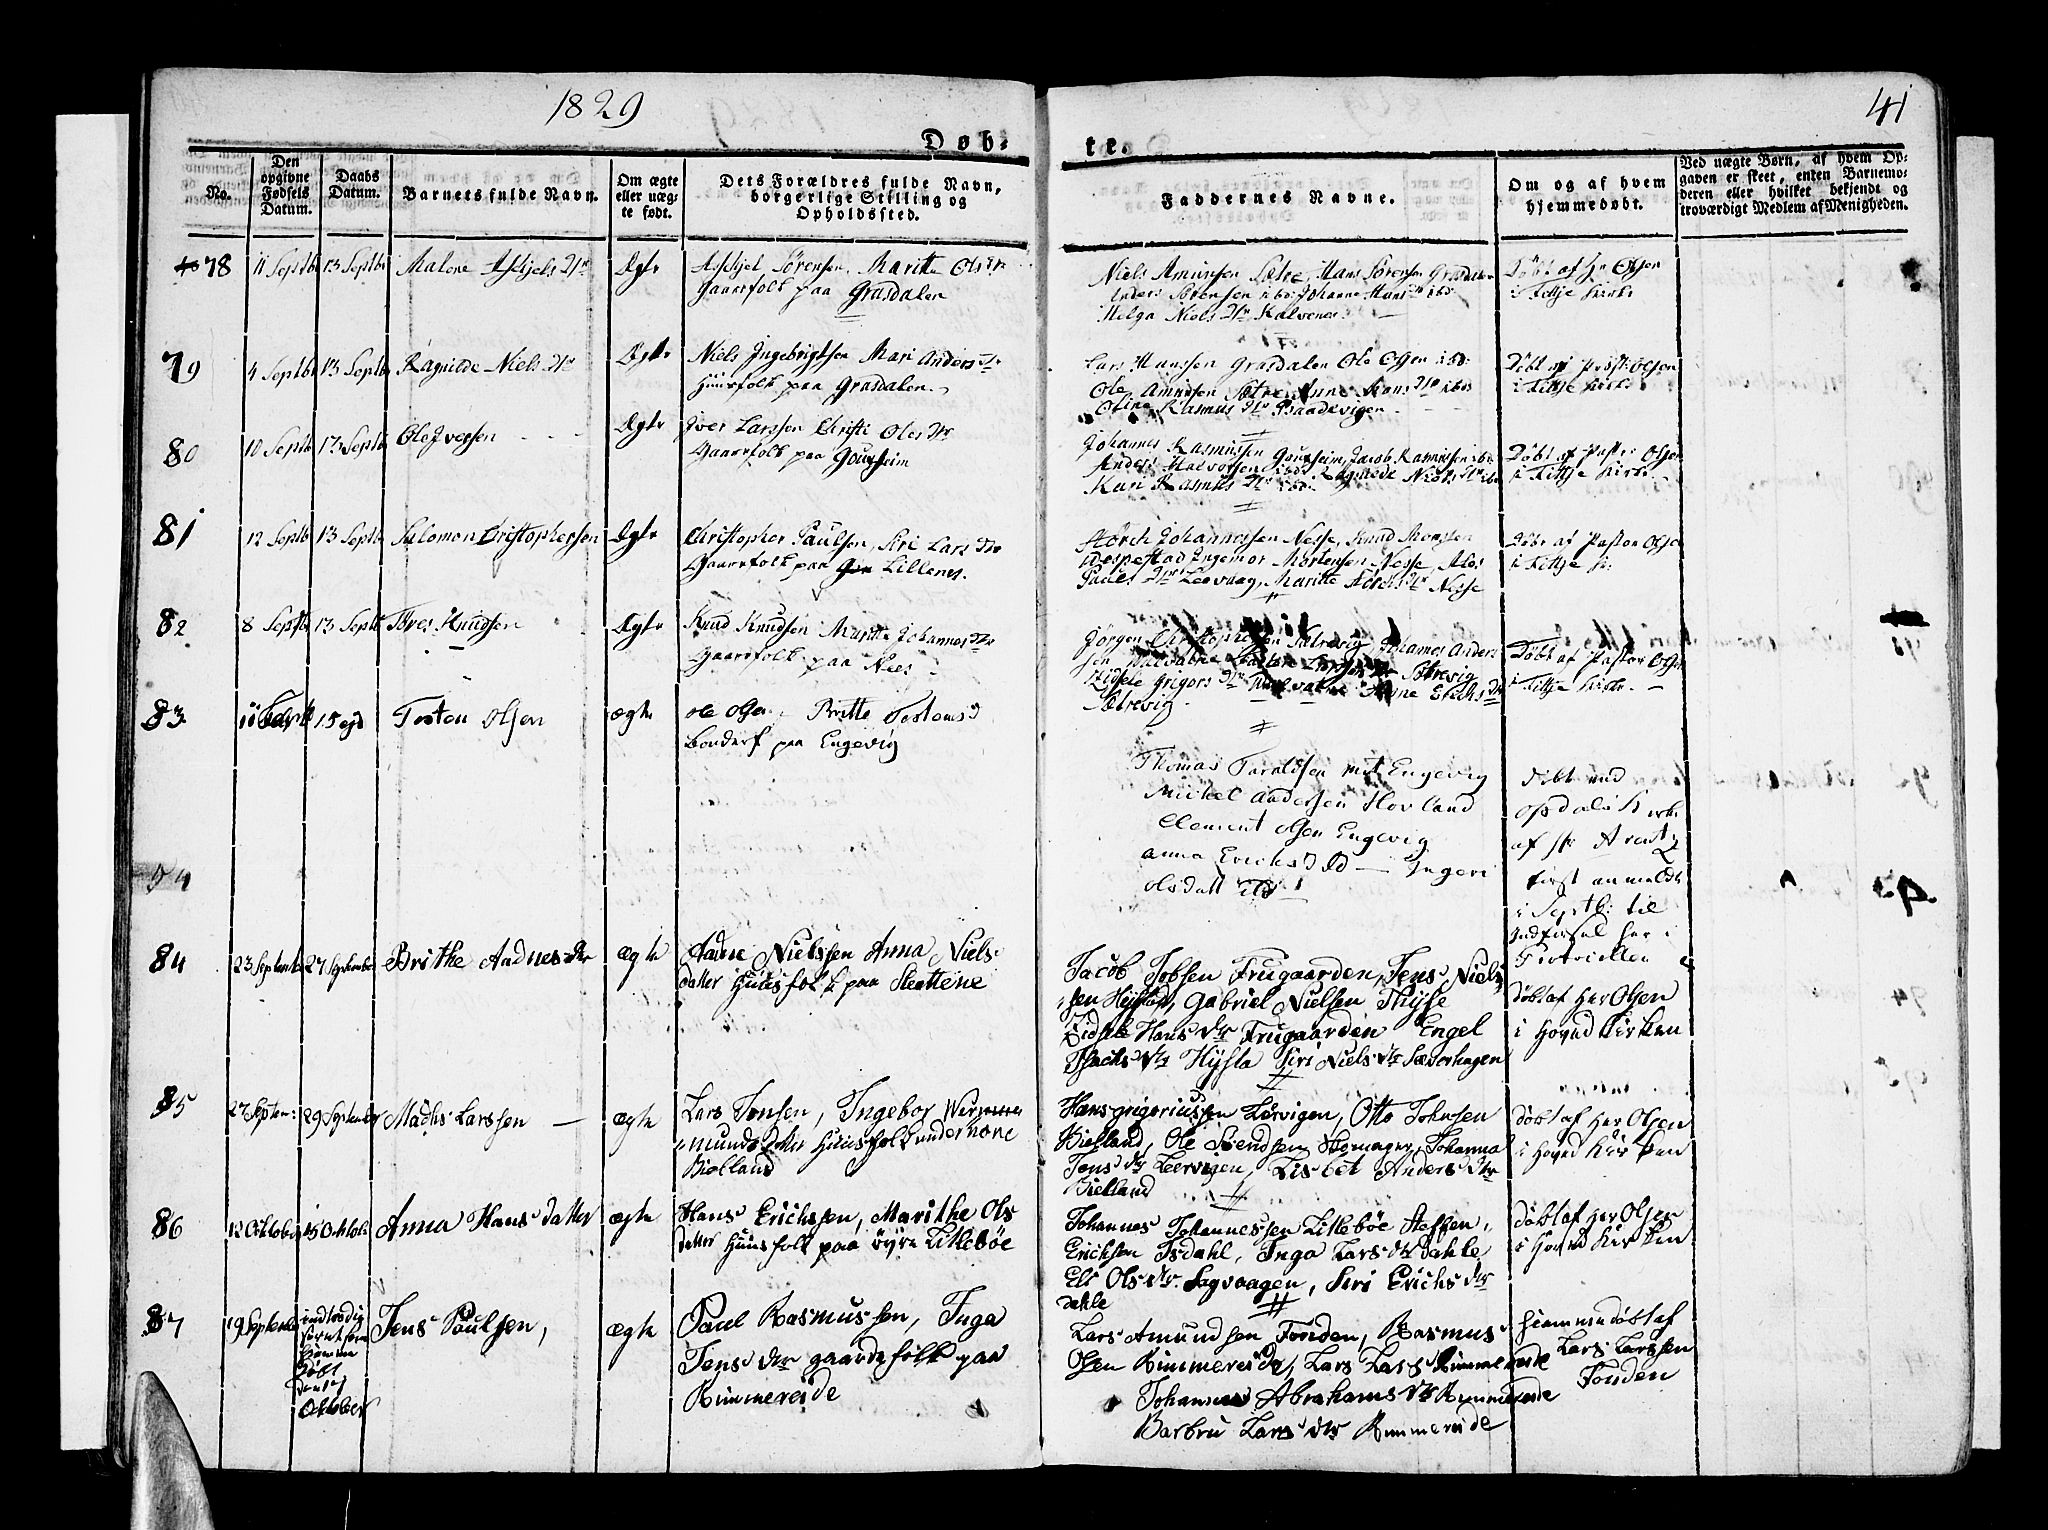 1829
41
Døb-
te.
No.
Den opgivne Fødsels Datum.
Daabs Datum.
Barnets fulde Navn.
Om ægte eller uægte født.
Dets Forældres fulde Navn, borgerlige Stilling og Opholdssted.
Faddernes Navne.
Om og af hvem hjemmedøbt.
Ved uægte Børn, af hvem Opgaven er skeet, enten Barnemoderen eller hvilket bekjendt og troværdigt Medlem af Menigheden.
78 11 Septbr 13 Septbr Malene Askjels Dtr Ægte Askjel Sørensen, Maritte Ols Dtr
Gaarfolk paa Grasdalen
Niels Amunsen Sætre, Hans Sørensen Grasdalen
Anders Sørensen ibd: Johanne Hans Dtr ibd
Helga Niels Dtr Kalvenes
Døbt af Hr Olsen
i Fittje Kirke
79 4 Septbr 13 Septbr Ragnilde Niels Dtr Ægte Niels Ingebrigtsen Mari Anders Dtr
Huusfolk paa Grasdalen
Lars Hanssen Grasdalen Ole Olsen ibd:
Ole Amunsen Sætre Anne Hans Dtr ibd
Oline Rasmus Dtr Baadevigen
Døbt af Past: Olsen
i Fittje Kirke
80 10 Septbr 13 Septbr Ole Iversen Ægte Iver Larssen Christi Oles Dtr
Gaarfolk paa Gourheim
Johannes Rasmussen Gourheim, Jacob Rasmussen ibd
Anders Halvorsen ibd: Ragnilde Niels Dtr ibd
Kari Rasmus Dtr ibd:
Døbt af Pastor Olsen
i Fittje Kirke
81 12 Septbr 13 Septbr Salomon Christophersen Ægte Christopher Paulsen, Siri Lars Dtr
Gaarfolk paa Lillenes.
Størch Johannessen Nesse, Knud Monsen
Wespestad Ingemor Mortensen Nesse,
Paules Dtr Leevaag, Maritte Størchs Dtr Nesse
Døbt af Pastor Olsen
i Fittje K:
82 8 Septbr 13 Septbr Tøres Knudsen Ægte Knud Knudsen Maritte Johannes Dtr
Gaarfolk paa Nees
Jørgen Christophersen Sætrevig Johannes Anders
sen
Zidsele Grigors Dtr Anne Erichs Dtr
Sætrevig.
Døbt af Pastor Olsen
i Fittje Kirke.
83 15 Tosten Olsen ægte Ole Olsen Britte Tostens D
Bonderf paa Engevig
Thomas Taraldsen Engevig
Michel Andersen Hovland
Clement Olsen Engevig
Anna Erichs D Ingeri
Olsdatt ibd
Døbt ved
Opdals Kirke
af Hr Arentz
først anmeldt
i Septb: til
Indførsel her i
84 23 September 27 September Brithe Aadnes Dtr ægte Aadne Nielssen Anna Niels
datter Huusfolk paa Slottene
Jacob Jobsen Frugaarden, Jens Niels
sen Hysstad, Gabriel Nielsen Thysse
Zidsele Hans Dtr Frugaarden Engel
Isachs Dtr Hysla Siri Niels Dtr Sæverhagen
Døbt af Her Olsen
i Hoved Kirken
85 27 Septem: 29 September Machs Larssen ægte Lars Jensen, Ingebor
munds Datter Huusfolk
Bielland
Hans grigoriussen Lervigen, Otto Johnsen
Bielland, Ole Svendsen Johanna
Jens Dtr Leervigen, Lisbet Anders Dtr
Bielland
Døbt af Her Olsen
i Hoved Kirken
86 12 Oktober 15 Oktober Anna Hans datter ægte Hans Erichssen, Marithe Ols
datter Huusfolk paa øvre Litlebøe
Johannes Johannessen Litlebøe Steffen
Erichsen Isdahl, Inga Lars Dtr Dahle
Eli Ols Dtr. Sagvaagen, Siri Erichs Dtr
dahle
Døbt af Her Olsen
i Hoved Kirken
87 19 September Jens Paulsen, ægte Paul Rasmussen, Inga
Jens Dtr gaardsfolk paa
Rimmereide
Lars Amundsen Fonden, Rasmus
Olsen Rimmereide, Lars Lars: Rimmereide
Johanne Abrahams Dtr Rimmereide
Barbru Lars Dtr Rimmereide
hiemmedøbt af
Lars Larssen
Fonden
Oktober